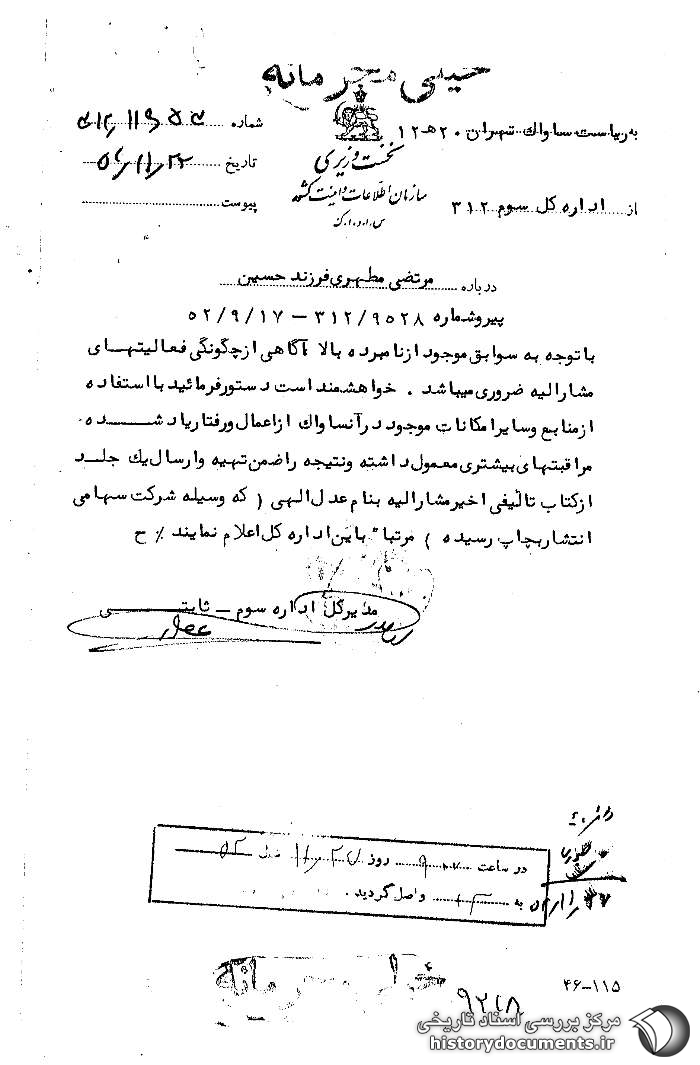 خیلی محرمانه
به ریاست ساواک تهران ۲۰ ه‍ ۱۲
شماره
نخست وزیری
تاریخ
سازمان اطلاعات و امنیت کشور
از اداره کل سوم ۳۱۲
پیوست
س.ا.و.ا.ک
درباره مرتضی مطهری فرزند حسین
پیرو شماره ۳۱۲/۹۵۲۸ – ۵۲/۹/۱۷
با توجه به سوابق موجود از نامبرده بالا آگاهی از چگونگی فعالیتهای
مشارالیه ضروری میباشد . خواهشمند است دستور فرمائید با استفاده
از منابع وسایر امکانات موجود در آنساواک از اعمال و رفتار یاد شده
مراقبتهای بیشتری معمول داشته ونتیجه را ضمن تهیه وارسال یک جلد
از کتاب تالیفی اخیر مشارالیه بنام عدل الهی ( که وسیله شرکت سهامی
انتشار بچاپ رسیده ) مرتبا" باین اداره کل اعلام نمایند ٪ ح
مدیر کل اداره سوم – ثابتی
در ساعت روز
به واصل گردید .
خیلی محرمانه
۴۶–۱۱۵
مرکز بررسی اسناد تاریخی
historydocuments.ir